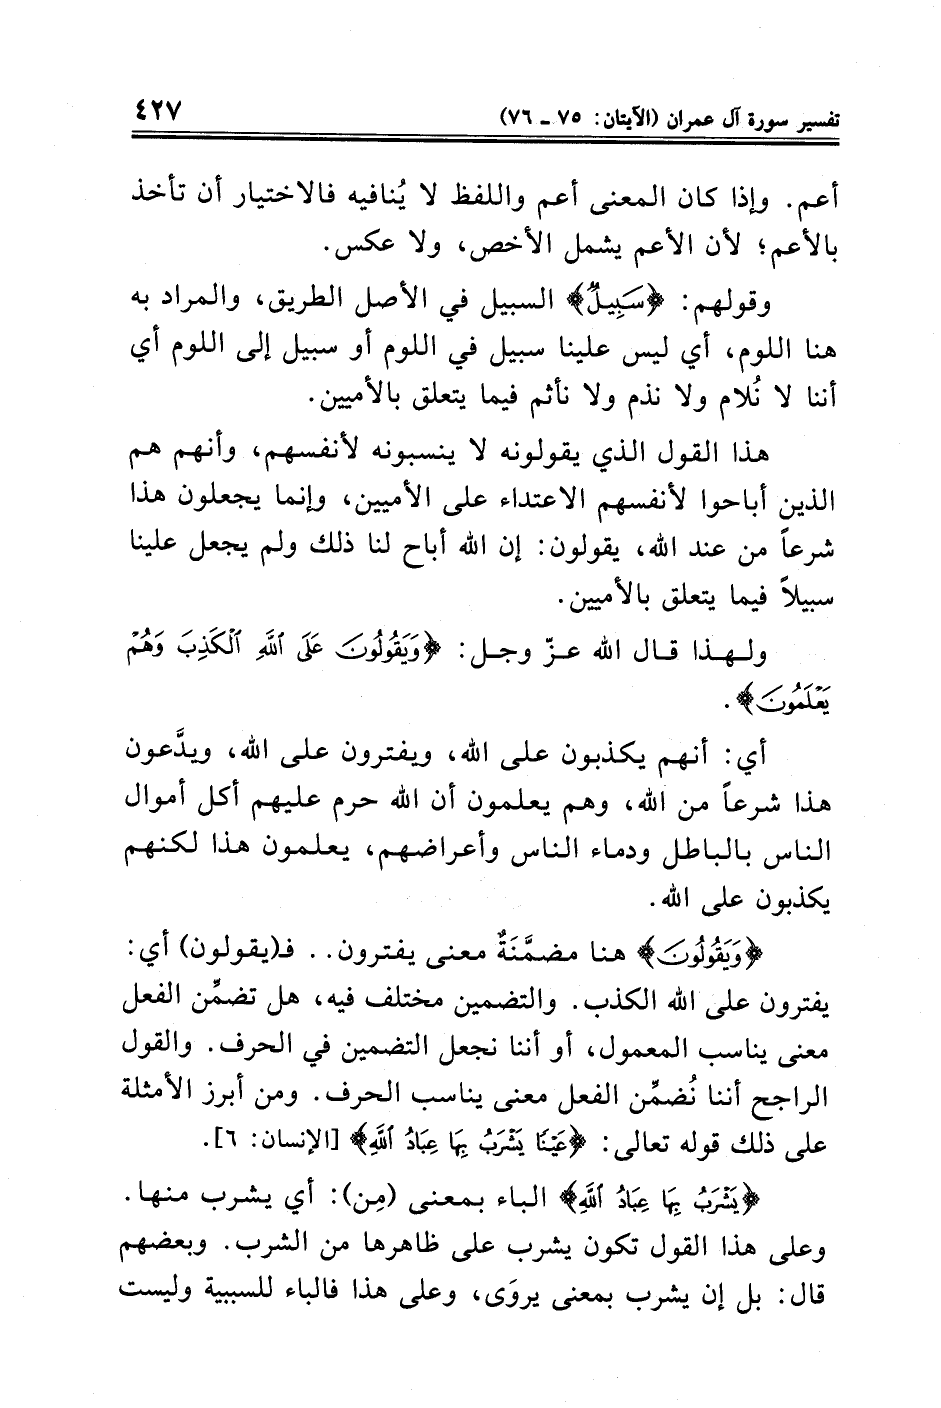 تفسير سورة آل عمران (الآيتان: ٧٥ ـ ٧٦) ٤٢٧
أعم. وإذا كان المعنى أعم واللفظ لا يُنافيه فالاختيار أن تأخذ
بالأعم؛ لأن الأعم يشمل الأخص، ولا عكس.
وقولهم: ﴿سَبِيلٌ﴾ السبيل في الأصل الطريق، والمراد به
هنا اللوم، أي ليس علينا سبيل في اللوم أو سبيل إلى اللوم أي
أننا لا نُلام ولا نذم ولا نأثم فيما يتعلق بالأميين.
هذا القول الذي يقولونه لا ينسبونه لأنفسهم، وأنهم هم
الذين أباحوا لأنفسهم الاعتداء على الأميين، وإنما يجعلون هذا
شرعاً من عند الله، يقولون: إن الله أباح لنا ذلك ولم يجعل علينا
سبيلاً فيما يتعلق بالأميين.
ولهذا قال الله عزّ وجل: ﴿وَيَقُولُونَ عَلَى ٱللَّهِ ٱلْكَذِبَ وَهُمْ
يَعْلَمُونَ﴾.
أي: أنهم يكذبون على الله، ويفترون على الله، ويدَّعون
هذا شرعاً من الله، وهم يعلمون أن الله حرم عليهم أكل أموال
الناس بالباطل ودماء الناس وأعراضهم، يعلمون هذا لكنهم
يكذبون على الله.
﴿وَيَقُولُونَ﴾ هنا مضمَّنَةٌ معنى يفترون.. فـ(يقولون) أي:
يفترون على الله الكذب. والتضمين مختلف فيه، هل تضمِّن الفعل
معنى يناسب المعمول، أو أننا نجعل التضمين في الحرف. والقول
الراجح أننا نُضمِّن الفعل معنى يناسب الحرف. ومن أبرز الأمثلة
على ذلك قوله تعالى: ﴿عَيْنًا يَشْرَبُ بِهَا عِبَادُ ٱللَّهِ﴾ [الإنسان: ٦].
﴿يَشْرَبُ بِهَا عِبَادُ ٱللَّهِ﴾ الباء بمعنى (مِن): أي يشرب منها.
وعلى هذا القول تكون يشرب على ظاهرها من الشرب. وبعضهم
قال: بل إن يشرب بمعنى يروَى، وعلى هذا فالباء للسببية وليست